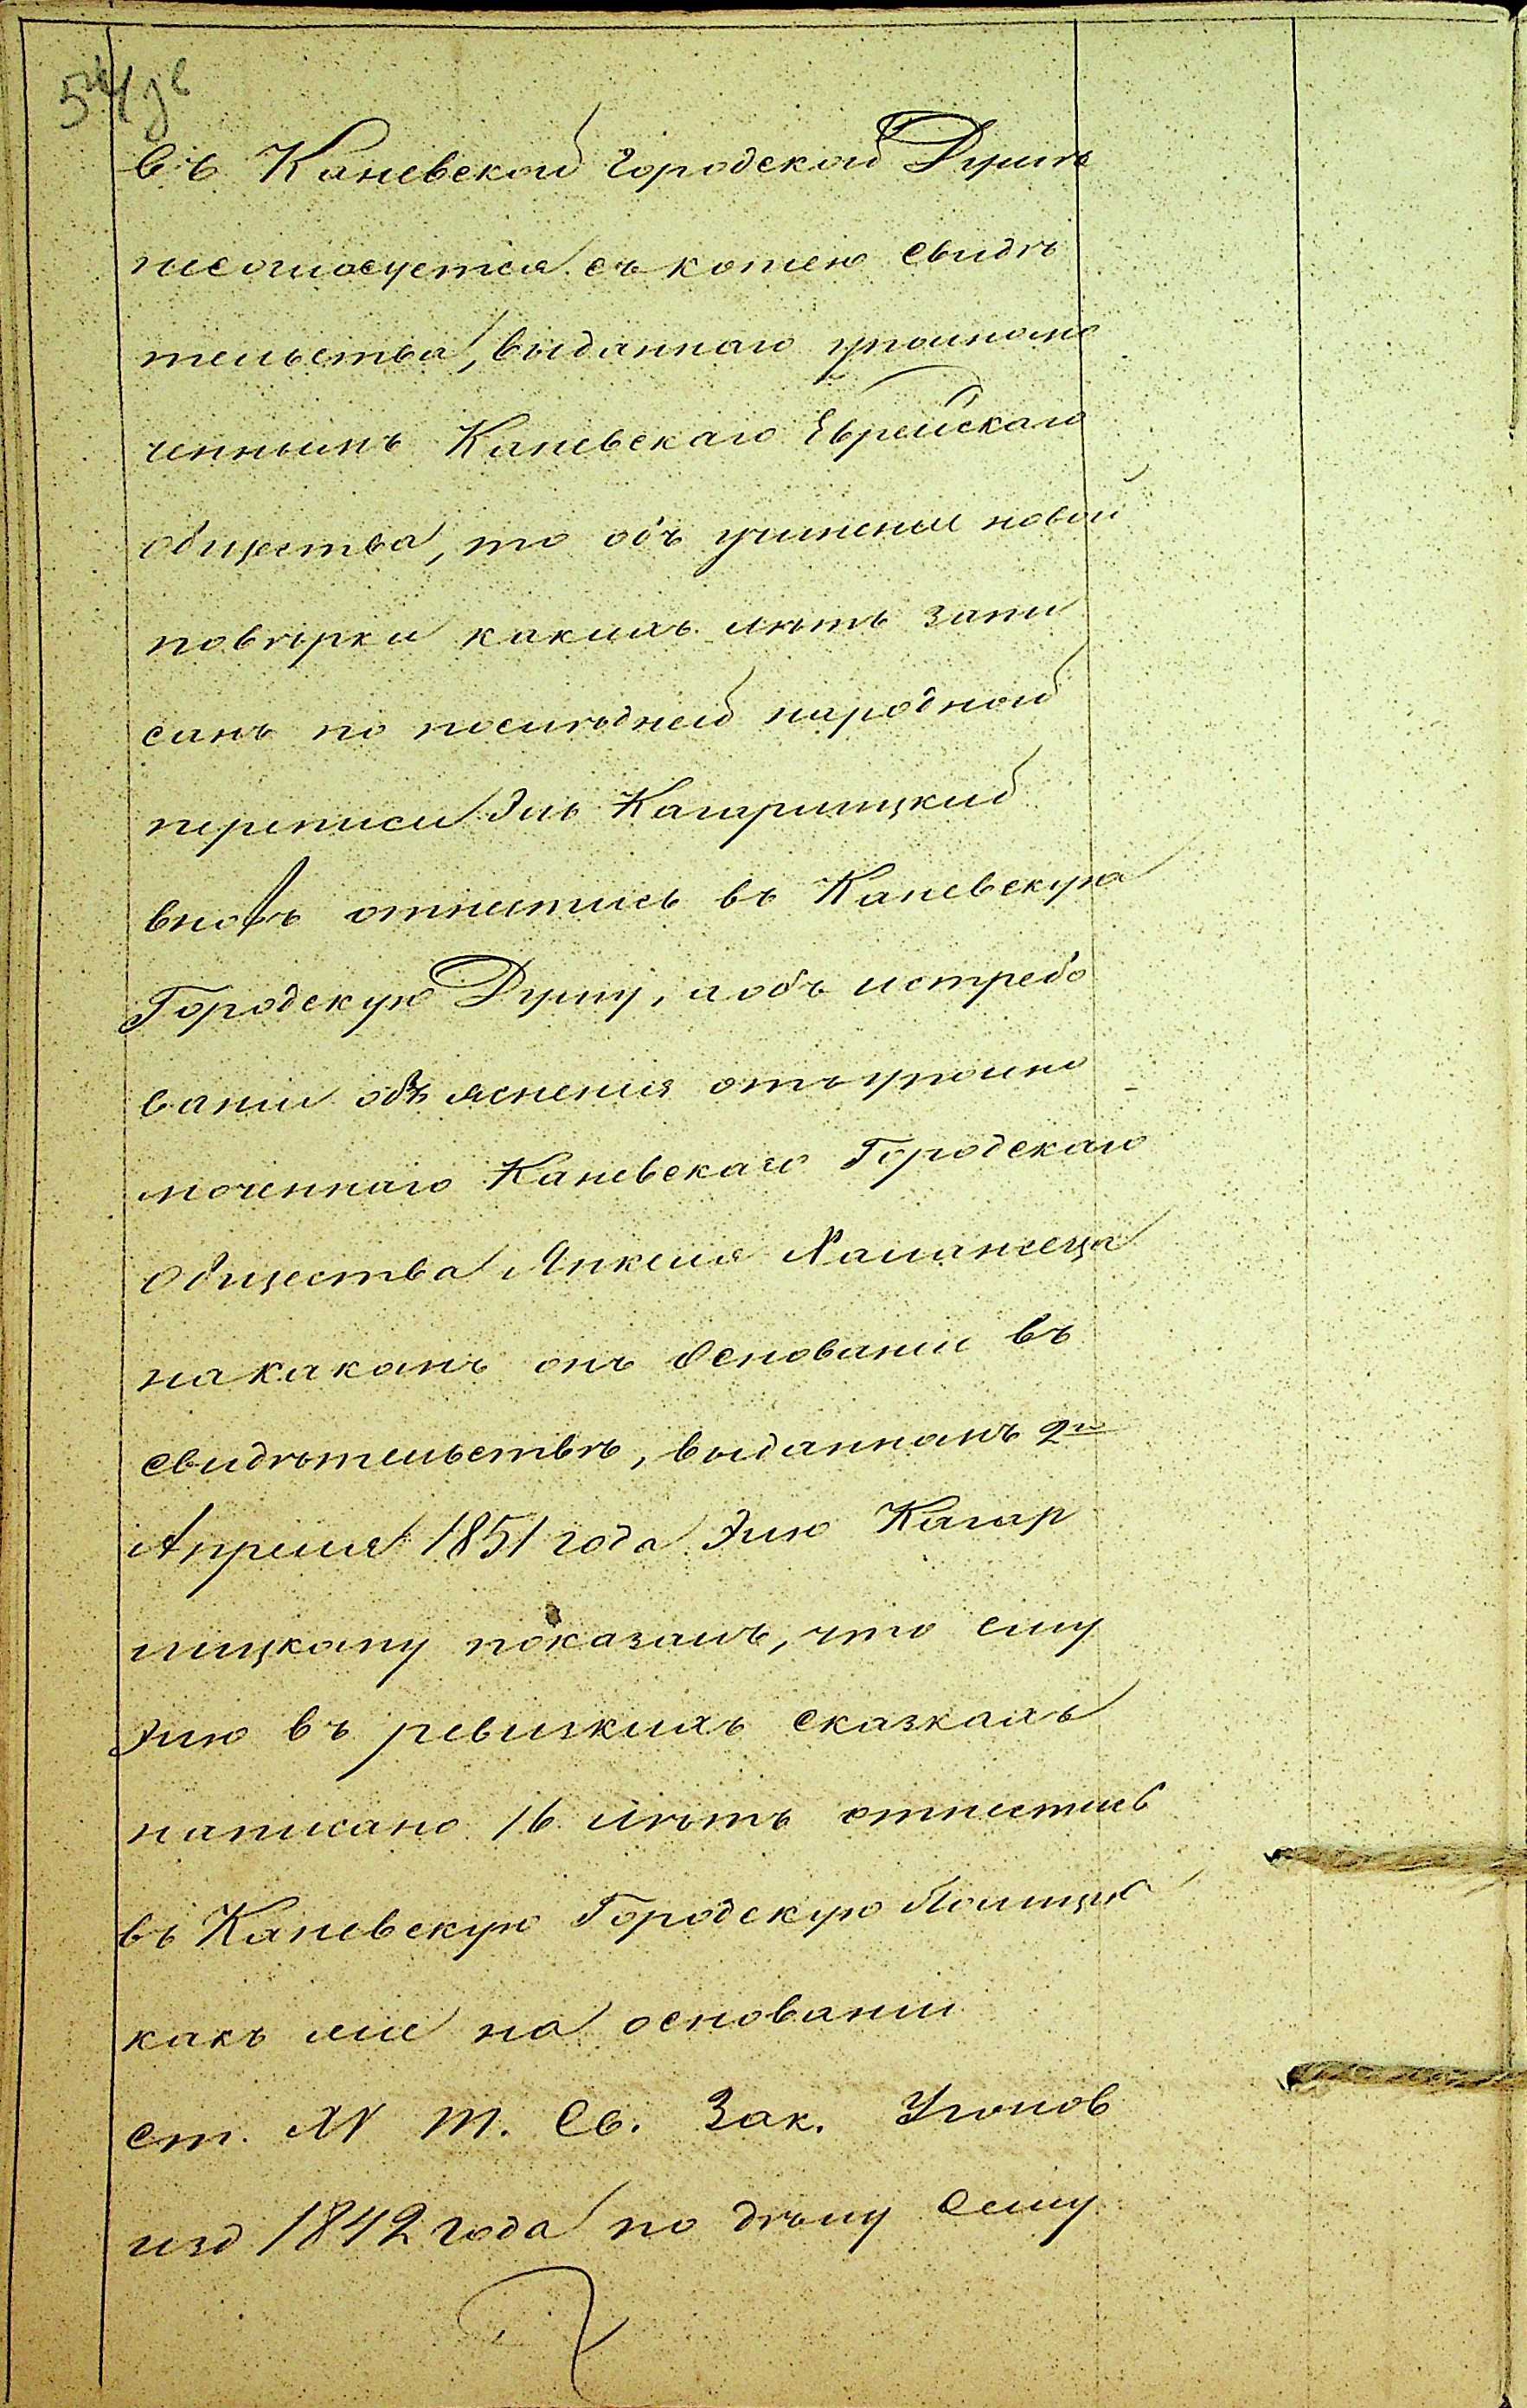 въ Каневской Городской Думѣ
несогласуется съ копіею свидѣ
тельства, выданнаго уполномо
ченнымъ Каневскаго Еврейскаго
общества, то объ учиненіи новой
повѣрки какихъ лѣтъ запи
санъ по послѣдней народной
переписи Эль Кагарлицкій
вновь отнестись въ Каневскую
Городскую Думу, а объ истребо
ваніи объясненія отъ уполно
моченнаго Каневскаго Городскаго
общества Янкеля
на какомъ онъ основаніи въ
свидѣтельствѣ, выданномъ 2го
Апреля 1851 года Элю Кагар
лицкому показалъ, что ему
Элю въ ревизкихъ сказкахъ
написано 16 лѣтъ отнестись
въ Каневскую Городскую Полицію
какъ на основаніи
ст. XV т. Св. Зак. Уголов
изд 1842 года по дѣлу сему